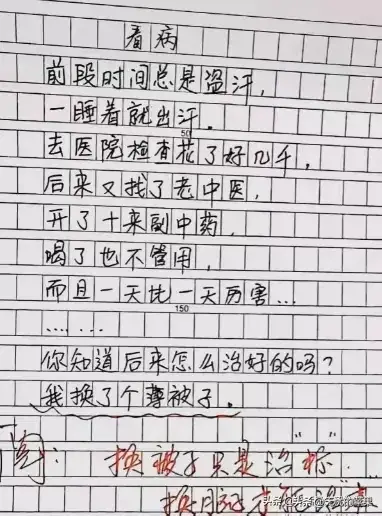 看病
前段时间总是盗汗，
一睡着就出汗。
50
去医院检查花了好几千，
后来又找了老中医，
开了十来副中药，
喝了也不管用，
而且一天比一天厉害…
150
……
你知道后来怎么治好的吗？
我换了个薄被子。
阅：换被子只是治标
换脑子才能治本